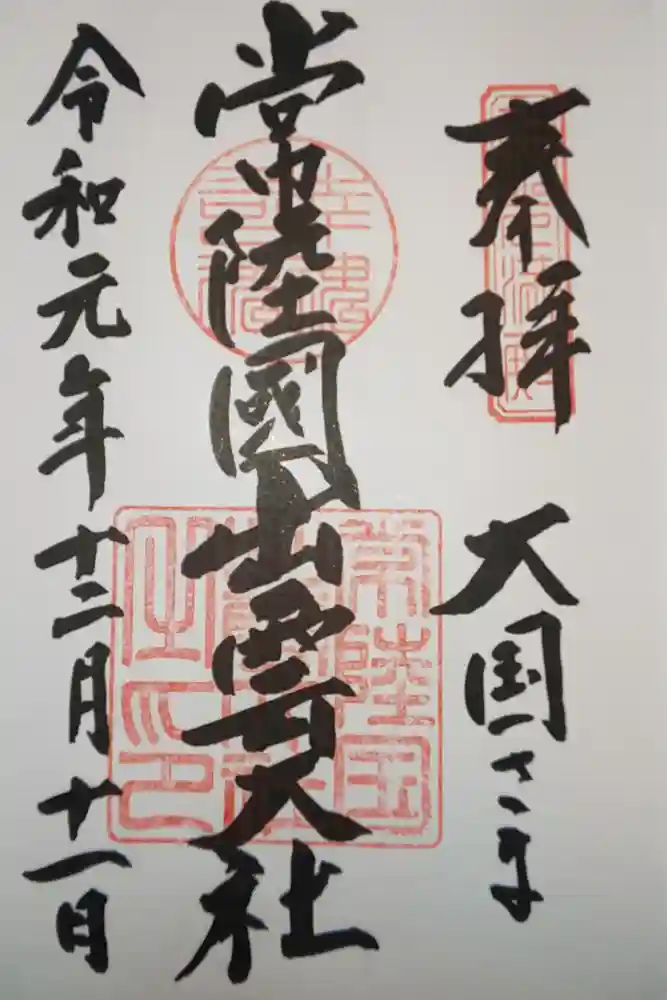 奉拝
大国さま
常陸國出雲大社
常陸国
之印
令和元年十二月十一日